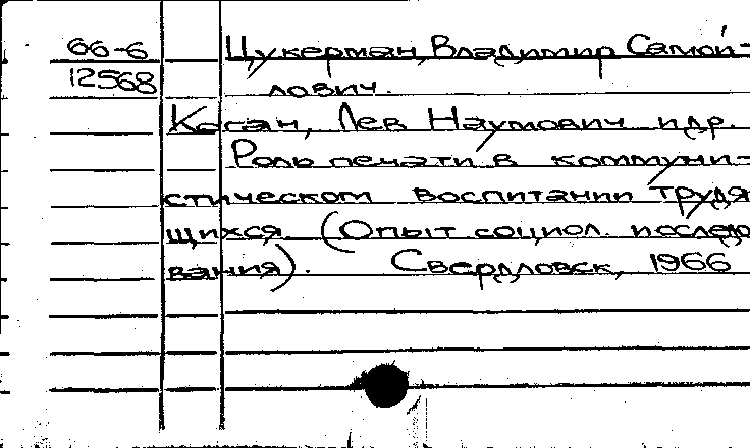 66-6 Цукерман, Владимир Самой-
12568 лович.
Коган, Лев Наумович и др.
Роль печати в коммуни-
стическом воспитании трудя
щихся (Опыт социол. исследо
вания). Свердловск, 1966